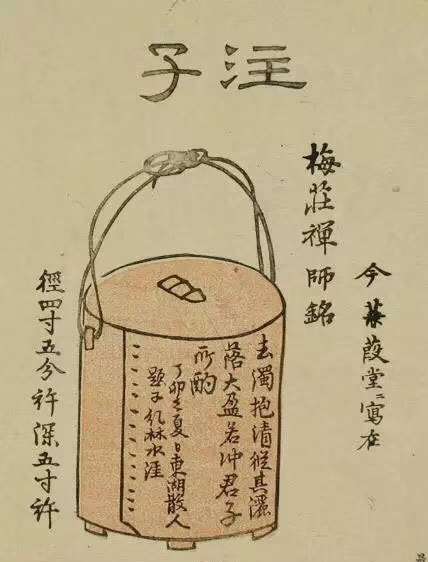 注子
今蒹葭堂ニ寫在
梅莊禪師銘
去濁抱清從其灑
落大盈若冲君子
所酌
丁卯孟夏日東湖散人
題于林水涯
徑四寸五分許深五寸許